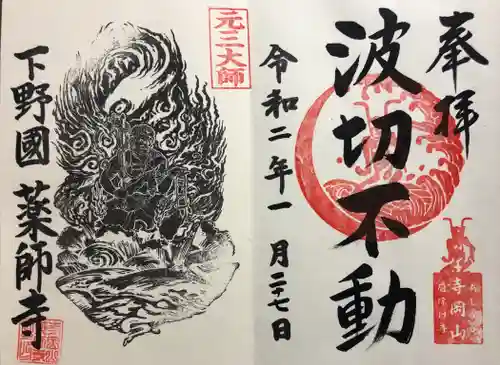 奉拝
波切不動
令和二年一月二十七日
元三大師
下野國薬師寺
寺岡山